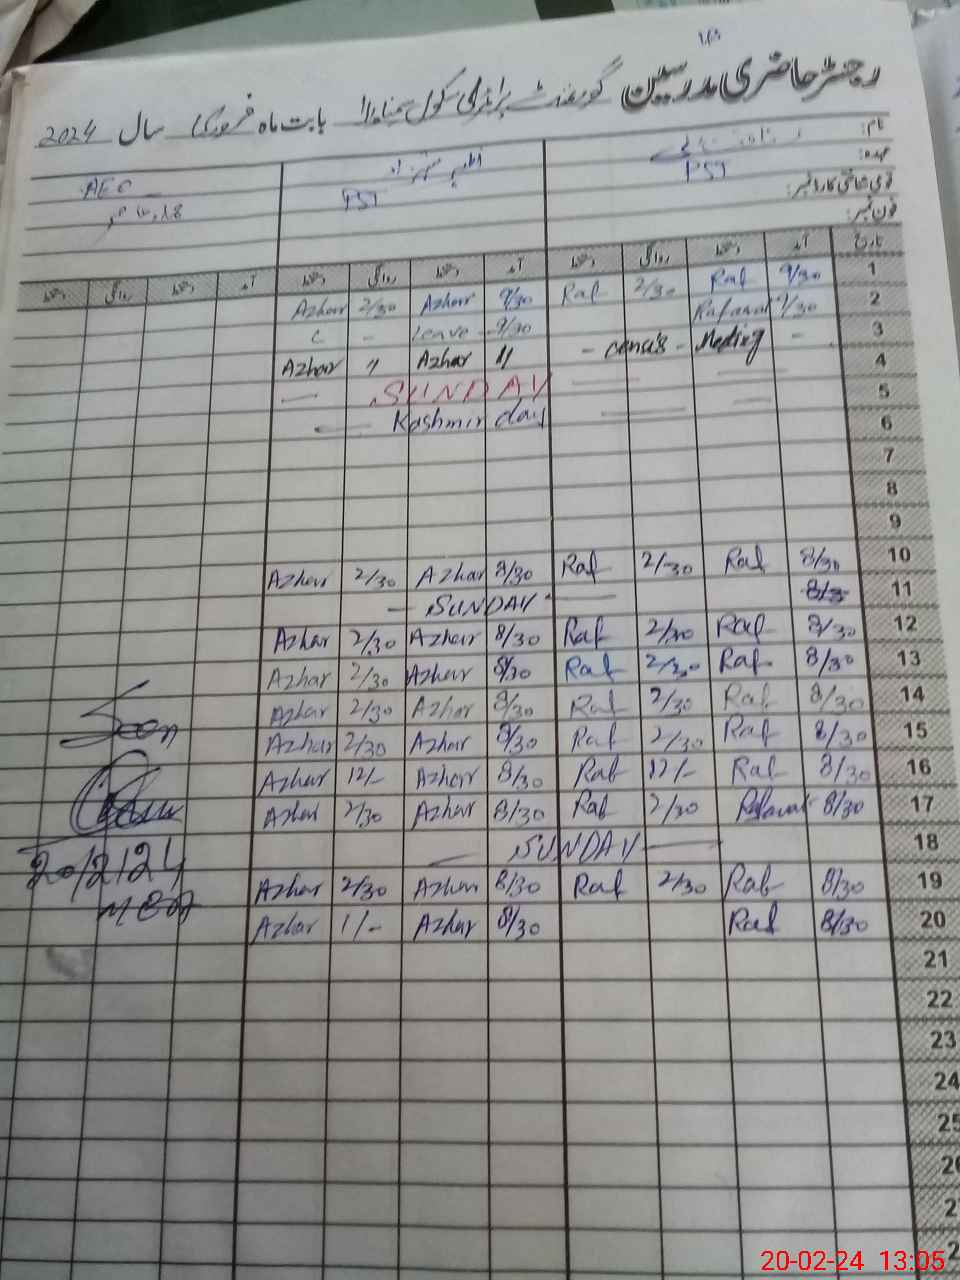 رجسٹر حاضری مدرسین گورنمنٹ پرائمری سکول بابت ماہ فروری سال 2024
نام:
PST PST AEO
عہدہ:
قومی شناختی کارڈ نمبر:
فون نمبر:
تاریخ آمد دستخط روانگی دستخط آمد دستخط روانگی دستخط آمد دستخط روانگی دستخط
1 9/30 Raf 2/30 Raf 9/30 Azhar 2/30 Azhar
2 9/30 Rafaqat 9/30 leave - C
3 - census - Meeting - 11 Azhar 11 Azhar
4 SUNDAY
5 Kashmir day
6
7
8
9
10 8/30 Raf 2/30 Raf 8/30 Azhar 2/30 Azhar
11 8/3 - SUNDAY -
12 8/30 Raf 2/30 Raf 8/30 Azhar 2/30 Azhar
13 8/30 Raf 2/30 Raf 8/30 Azhar 2/30 Azhar
14 8/30 Raf 2/30 Raf 8/30 Azhar 2/30 Azhar
15 8/30 Raf 2/30 Raf 8/30 Azhar 2/30 Azhar
16 8/30 Raf 12/- Raf 8/30 Azhar 12/- Azhar
17 8/30 Rafaqat 2/30 Raf 8/30 Azhar 2/30 Azhar
18 - SUNDAY -
19 8/30 Raf 2/30 Raf 8/30 Azhar 2/30 Azhar
20 8/30 Raf 8/30 Azhar 1/- Azhar
21
22
23
24
25
26
Seen
20/2/24
MEA
20-02-24 13:05